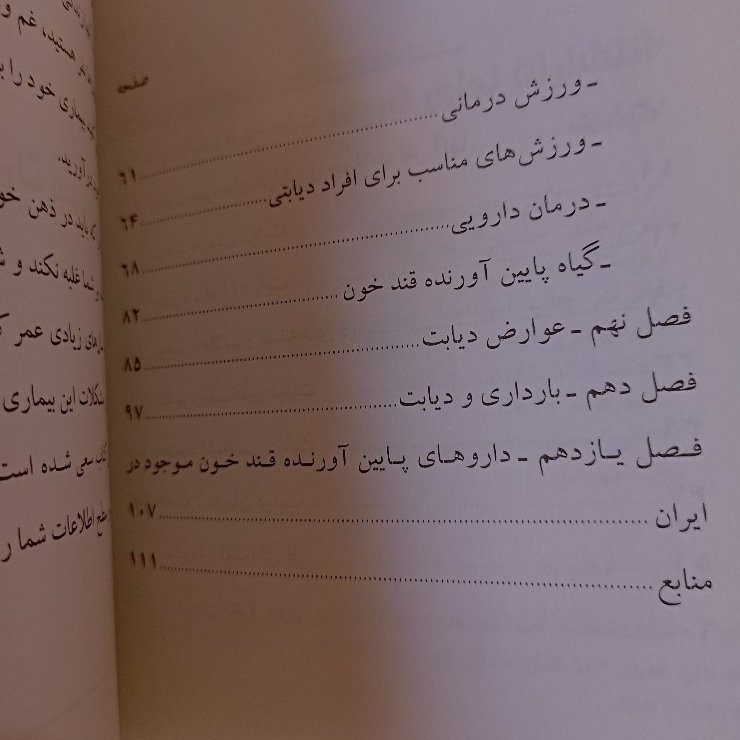 صفحه
ـ ورزش درمانی ........ ۶۱
ـ ورزش‌های مناسب برای افراد دیابتی ........ ۶۴
ـ درمان دارویی ........ ۶۸
ـ گیاه پایین آورنده قند خون ........ ۸۲
فصل نهم ـ عوارض دیابت ........ ۸۵
فصل دهم ـ بارداری و دیابت ........ ۹۷
فصل یازدهم ـ داروهای پایین آورنده قند خون موجود در
ایران ........ ۱۰۷
منابع ........ ۱۱۱
هستید، غم و
بیماری خود را
باید در ذهن
شما غلبه نکند و
زیادی عمر
این بیماری
سعی شده است
اطلاعات شما